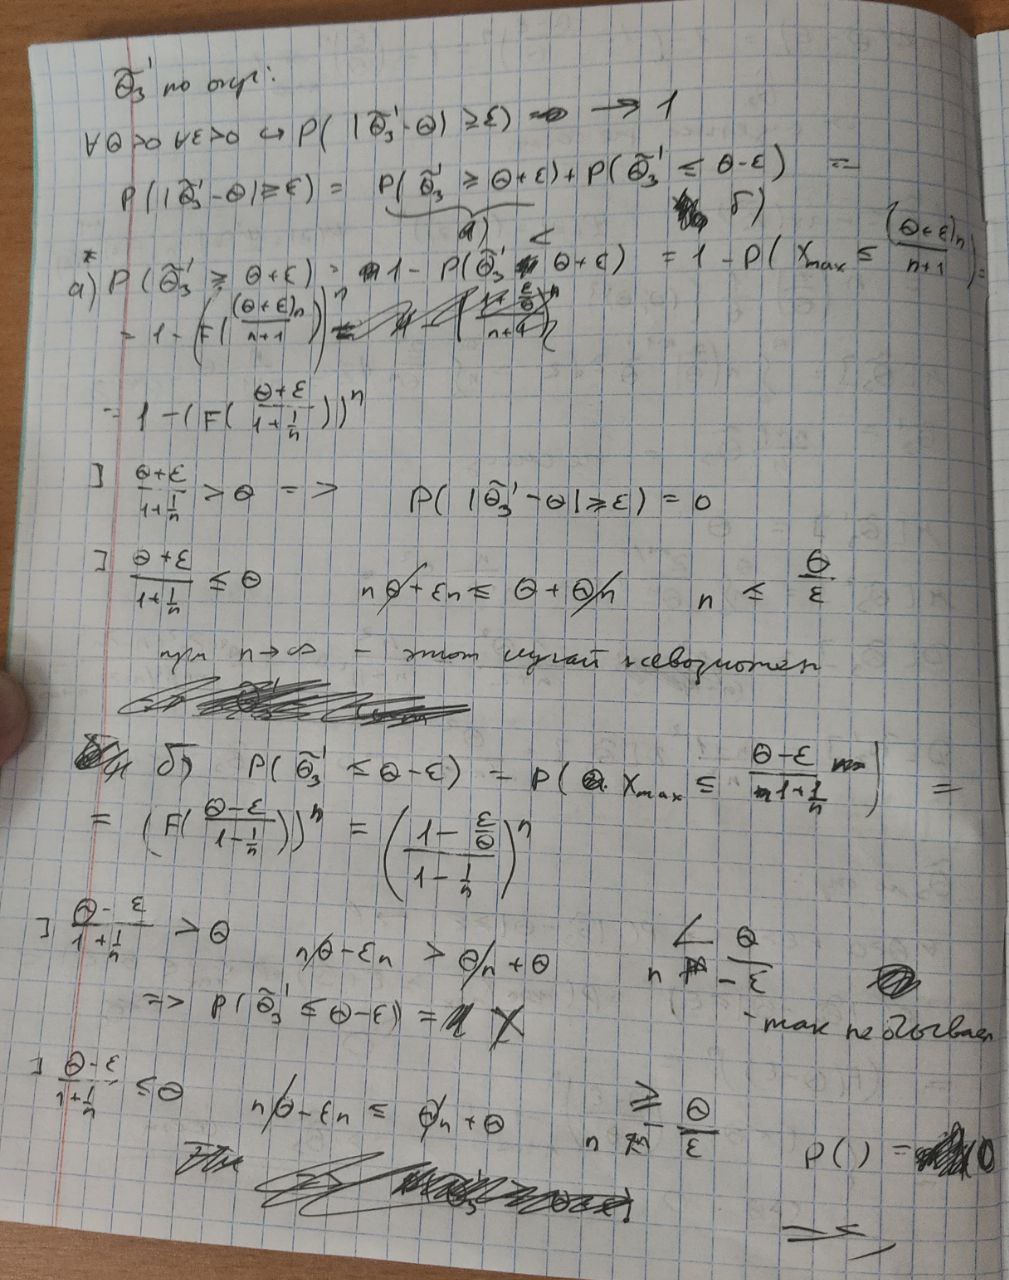 θ̃₃' по опр:
∀θ>0 ∀ε>0 ↪ P( |θ̃₃'-θ| ≥ε) → 1
P( |θ̃₃'-θ| ≥ε) = P( θ̃₃' ≥ θ+ε) + P( θ̃₃' ≤ θ-ε) =
а) б)
а) P( θ̃₃' ≥ θ+ε) = 1 - P( θ̃₃' < θ+ε) = 1 - P( x_max ≤ (θ+ε)n/(n+1) ) =
= 1 - (F( (θ+ε)n/(n+1) ))ⁿ =
= 1 - (F( (θ+ε)/(1+1/n) ))ⁿ
] (θ+ε)/(1+1/n) > θ => P( |θ̃₃'-θ| ≥ε) = 0
] (θ+ε)/(1+1/n) ≤ θ nθ+εn ≤ θ + θn n ≤ θ/ε
при n→∞ - этот случай невозможен
б) P( θ̃₃' ≤ θ-ε) = P( x_max ≤ (θ-ε)/(1+1/n) ) =
= (F( (θ-ε)/(1-1/n) ))ⁿ = ( (1-ε/θ)/(1-1/n) )ⁿ
] (θ-ε)/(1+1/n) > θ nθ-εn > θn+θ n < θ/-ε
=> P( θ̃₃' ≤ θ-ε) = - так не бывает
] (θ-ε)/(1+1/n) ≤ θ nθ-εn ≤ θn+θ n ≥ -θ/ε P( ) = 0